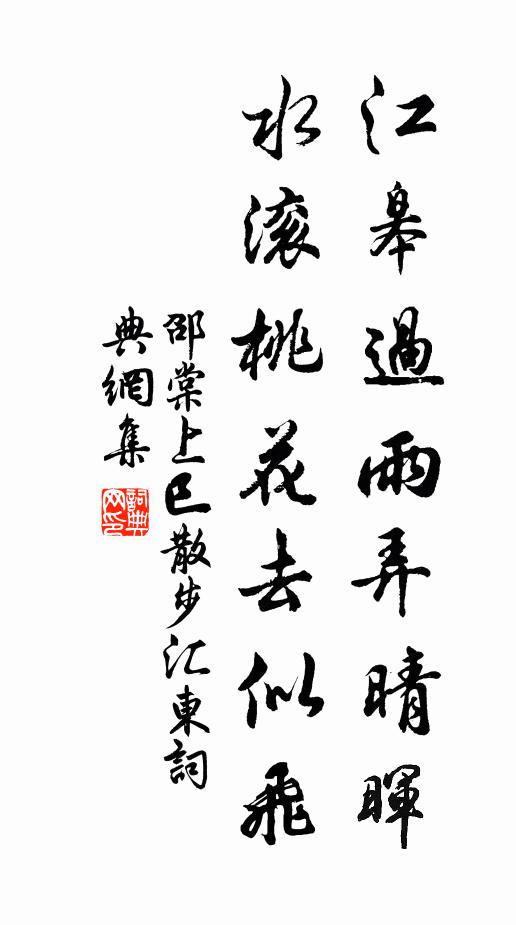 江皋過雨弄晴暉
水滚桃花去似飛
邵棠上巳散步江東詞
典網集
詞典網印